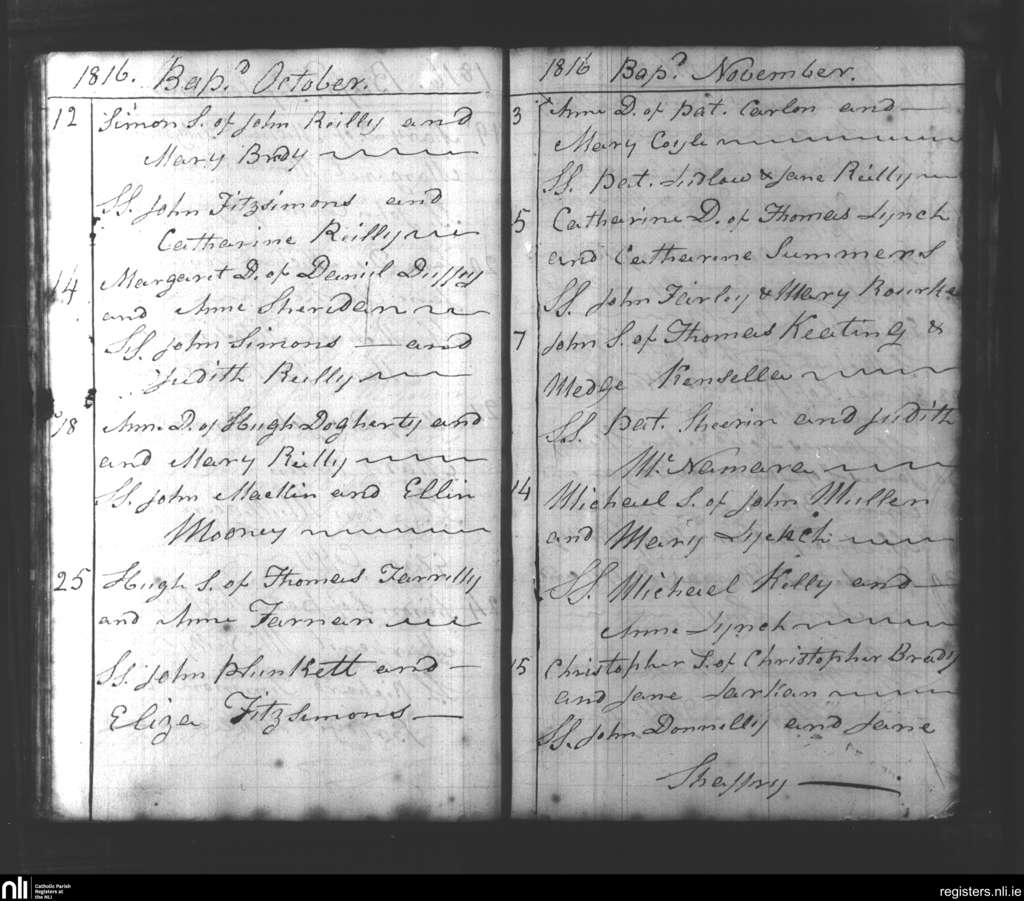 1816. Bap.d October.
12 Simon S. of John Reilly and
Mary Brdy
SS. John Fitzsimons and
Catharine Reilly
14 Margaret D. of Daniel Duffey
and Anne Sheridan
SS. John Simons — and
Judith Reilly
18 Anne D. of Hugh Dogherty and
and Mary Reilly
SS. John Mackin and Ellin
Mooney
25 Hugh S. of Thomas Farrilly
and Anne Farnan
SS. John Plunkett and —
Eliza Fitzsimons —
1816 Bap.d November.
3 Anne D. of Pat. Carlon and —
Mary Coyle
SS. Pat. Ludlow & Jane Reilly
5 Catharine D. of Thomas Lynch
and Catharine Summers
SS. John Farley & Mary Rourke
7 John S. of Thomas Keating &
Medge Kensella
SS. Pat. Sheerin and Judith
Mc. Namara
14 Michael S. of John Mullen
and Mary Lynch
SS. Michael Killy and —
Anne Lynch
15 Christopher S. of Christopher Brady
and Jane Larkan
SS. John Donnelly and Jane
Shaffry —
nli Catholic Parish
Registers at
the NLI
registers.nli.ie